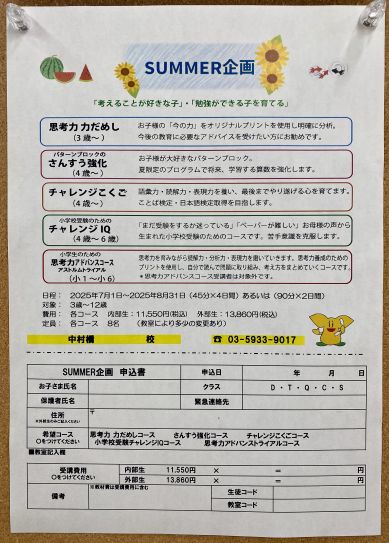 SUMMER企画
「考えることが好きな子」・「勉強ができる子を育てる」
思考力 力だめし
(3歳～)
お子様の「今の力」をオリジナルプリントを使用し明確に分析。
今後の教育に必要なアドバイスを受けたい方にお勧めです。
パターンブロックの
さんすう強化
(4歳～)
お子様が大好きなパターンブロック。
夏限定のプログラムで将来、学習する算数を強化します。
チャレンジこくご
(4歳～)
語彙力・読解力・表現力を養い、最後までやり遂げる心を育てます。
ことば検定・日本語検定取得を目指します。
小学校受験のための
チャレンジIQ
(4歳～6歳)
「まだ受験をするか迷っている」「ペーパーが難しい」お母様の声から
生まれた小学校受験のためのコースです。苦手意識を克服します。
小学生のための
思考力アドバンスコース
アストルムトライアル
(小1～小6)
思考力を育みながら読解力・分析力・表現力を磨いていきます。思考力養成のための
プリントを使用し、自分で読んで問題に取り組み、考え方をまとめていくコースです。
＊思考力アドバンスコースは対象外です。
日程: 2025年7月1日～2025年8月31日 (45分×4日間) あるいは (90分×2日間)
対象: 3歳～12歳
費用: 各コース 内部生:11,550円(税込) 外部生:13,860円(税込)
定員: 各コース 8名 (教室により多少の変更あり)
中村橋 校 ☎ 03-5933-9017
SUMMER企画 申込書 申込日 年 月 日
お子さま氏名 クラス D・T・Q・C・S
保護者氏名 緊急連絡先
住所 〒
※外部生のみご記入ください
希望コース
○をつけてください
思考力 力だめしコース さんすう強化コース チャレンジこくごコース
小学校受験チャレンジIQコース 思考力アドバンストライアルコース
■教室記入欄
受講費用
○をつけてください
内部生 11,550円 × ＝ 円
外部生 13,860円 × ＝ 円
備考 ※教材費は受講費用に含む 生徒コード
教室コード